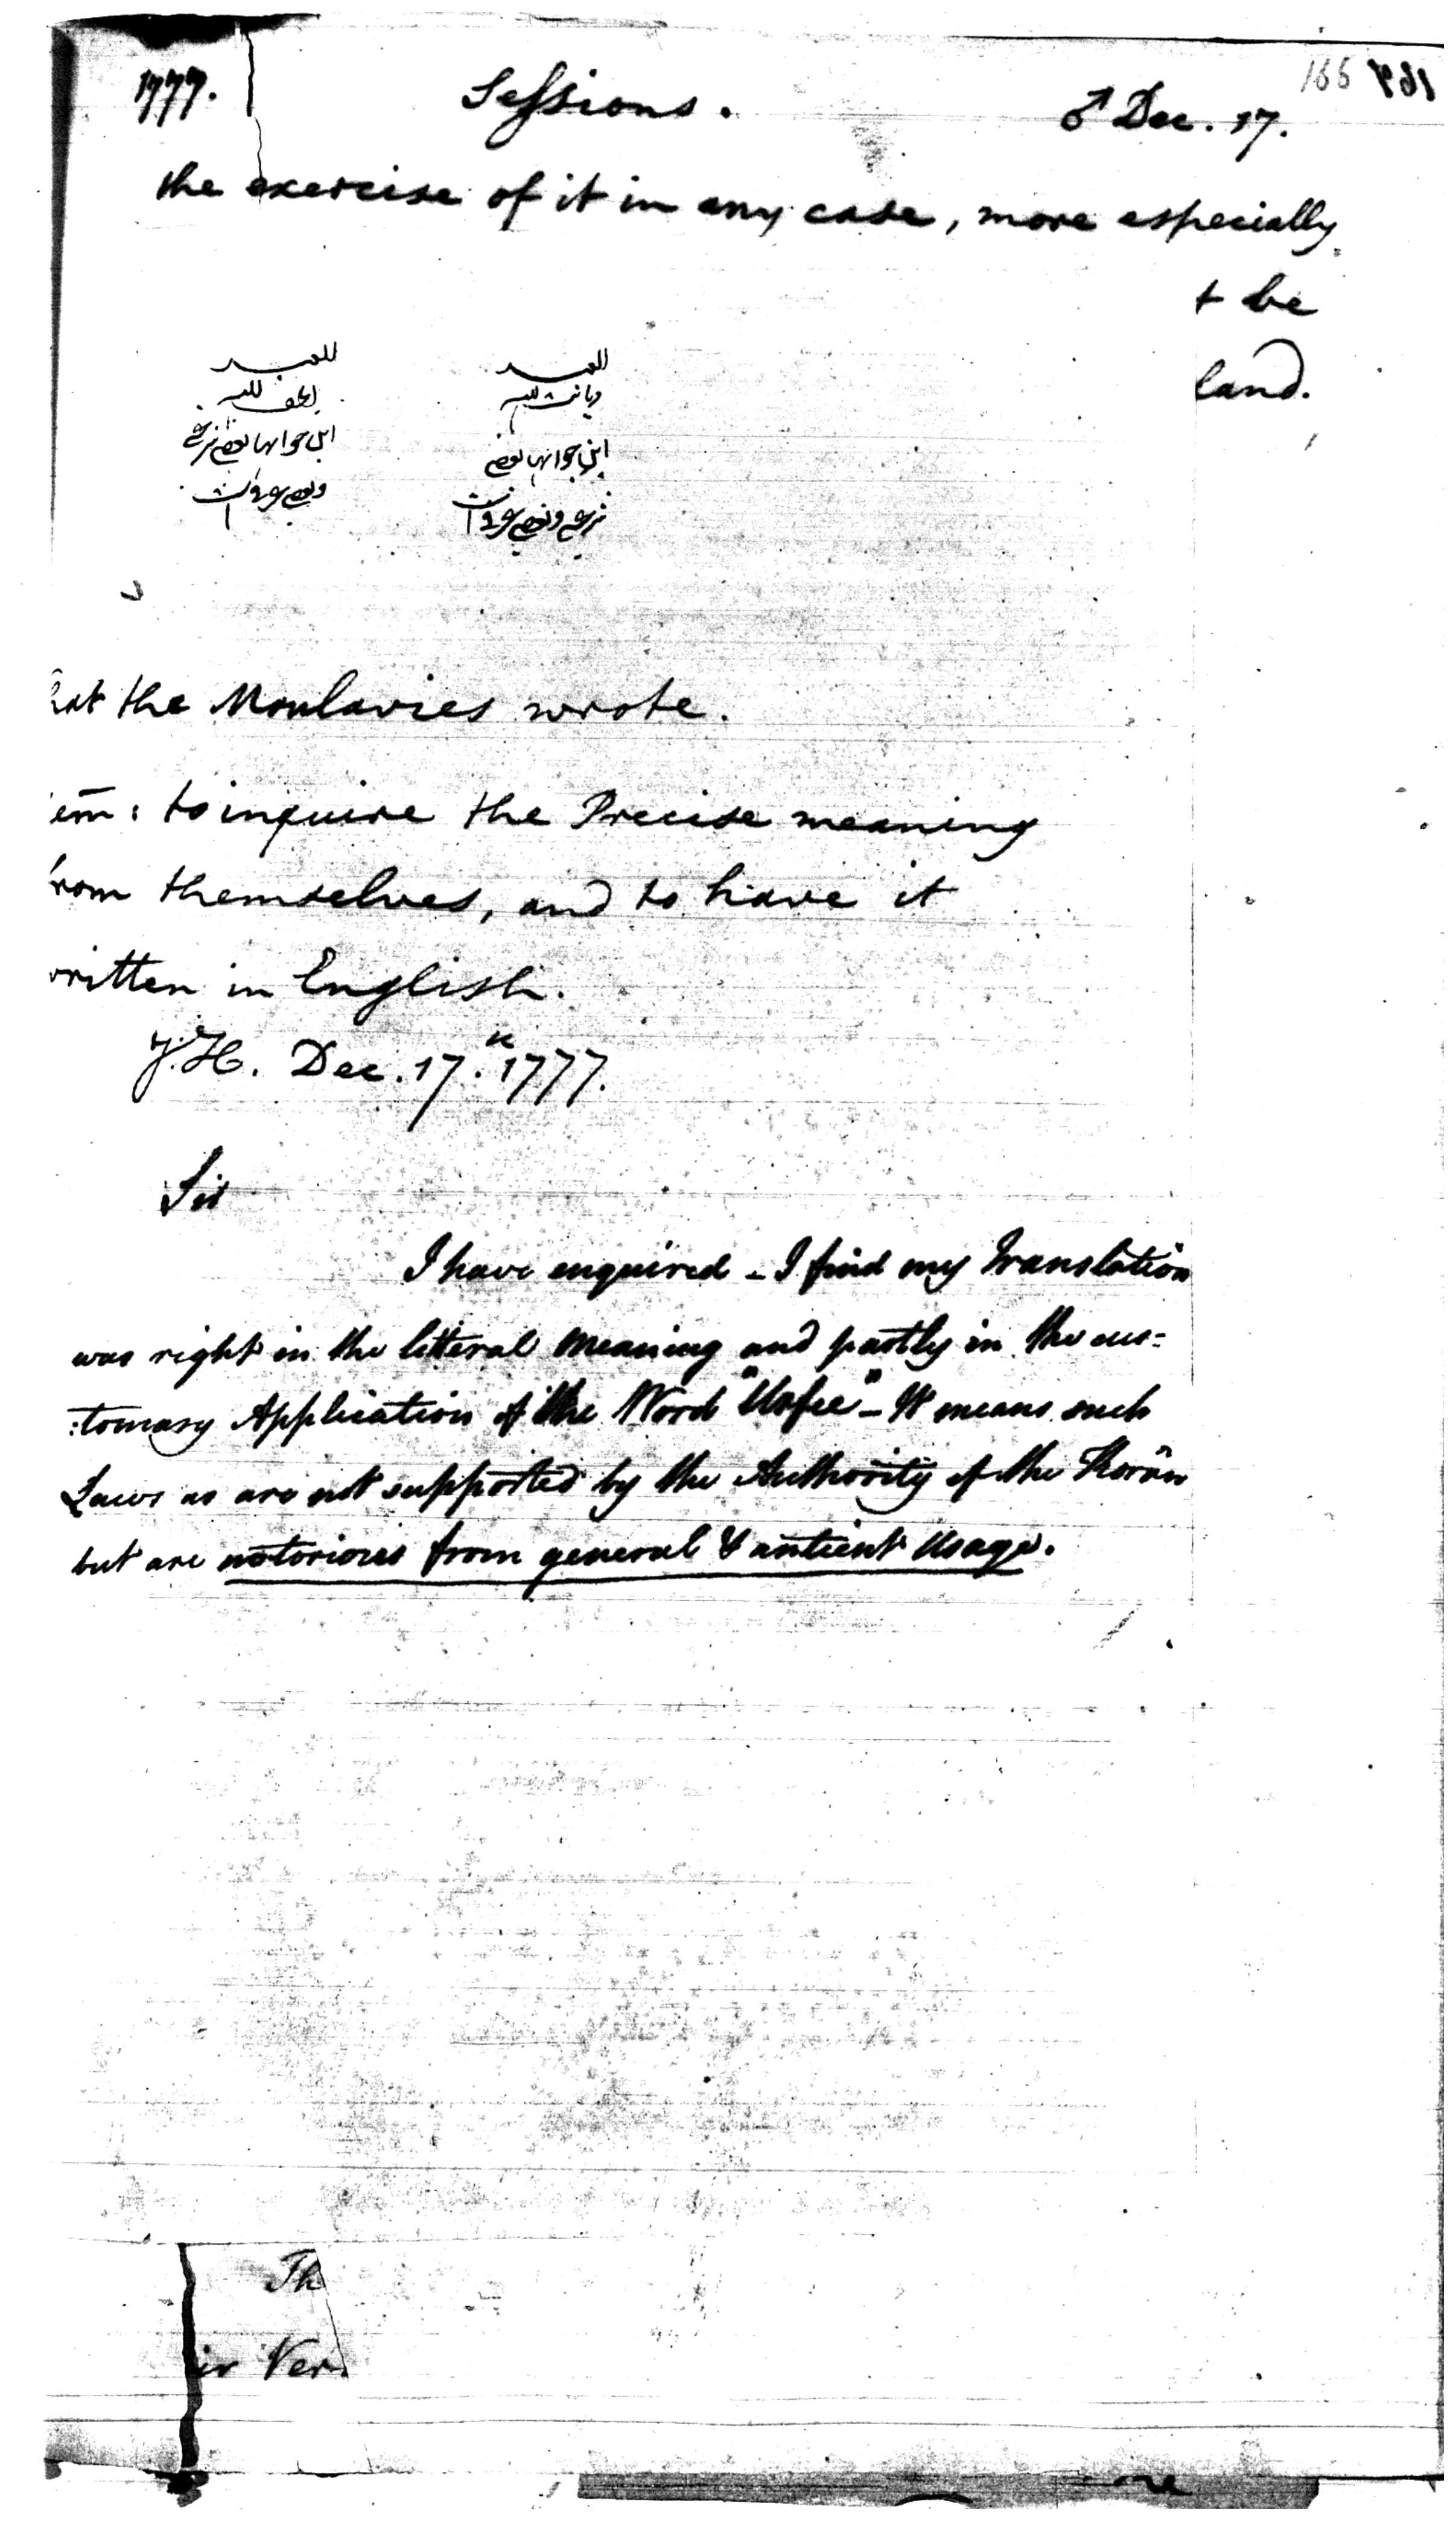 166 169
1777. Sessions. ♂ Dec. 17.
the exercise of it in any case, more especially
t be
land.
العبد
العبد
ديانت الله
اين جوابها بعضي
شرعي و بعضي عرفي است
اين جوابها بعضي شرعي
و بعضي عرفي است
hat the Moulavies wrote.
em: to inquire the Precise meaning
from themselves, and to have it
written in English.
J.H. Dec. 17. 1777.
Sir
I have enquired - I find my Translation
was right in the litteral meaning and partly in the cus=
:tomary Application of the Word "Urfee" - It means such
Laws as are not supported by the Authority of the Khorân
but are notorious from general & antient Usage.
Th
ir Ver